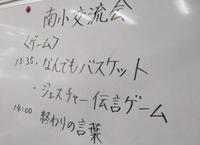 南小交流会
〈ゲーム〉
13:35・なんでもバスケット
・ジェスチャー伝言ゲーム
14:00 終わりの言葉